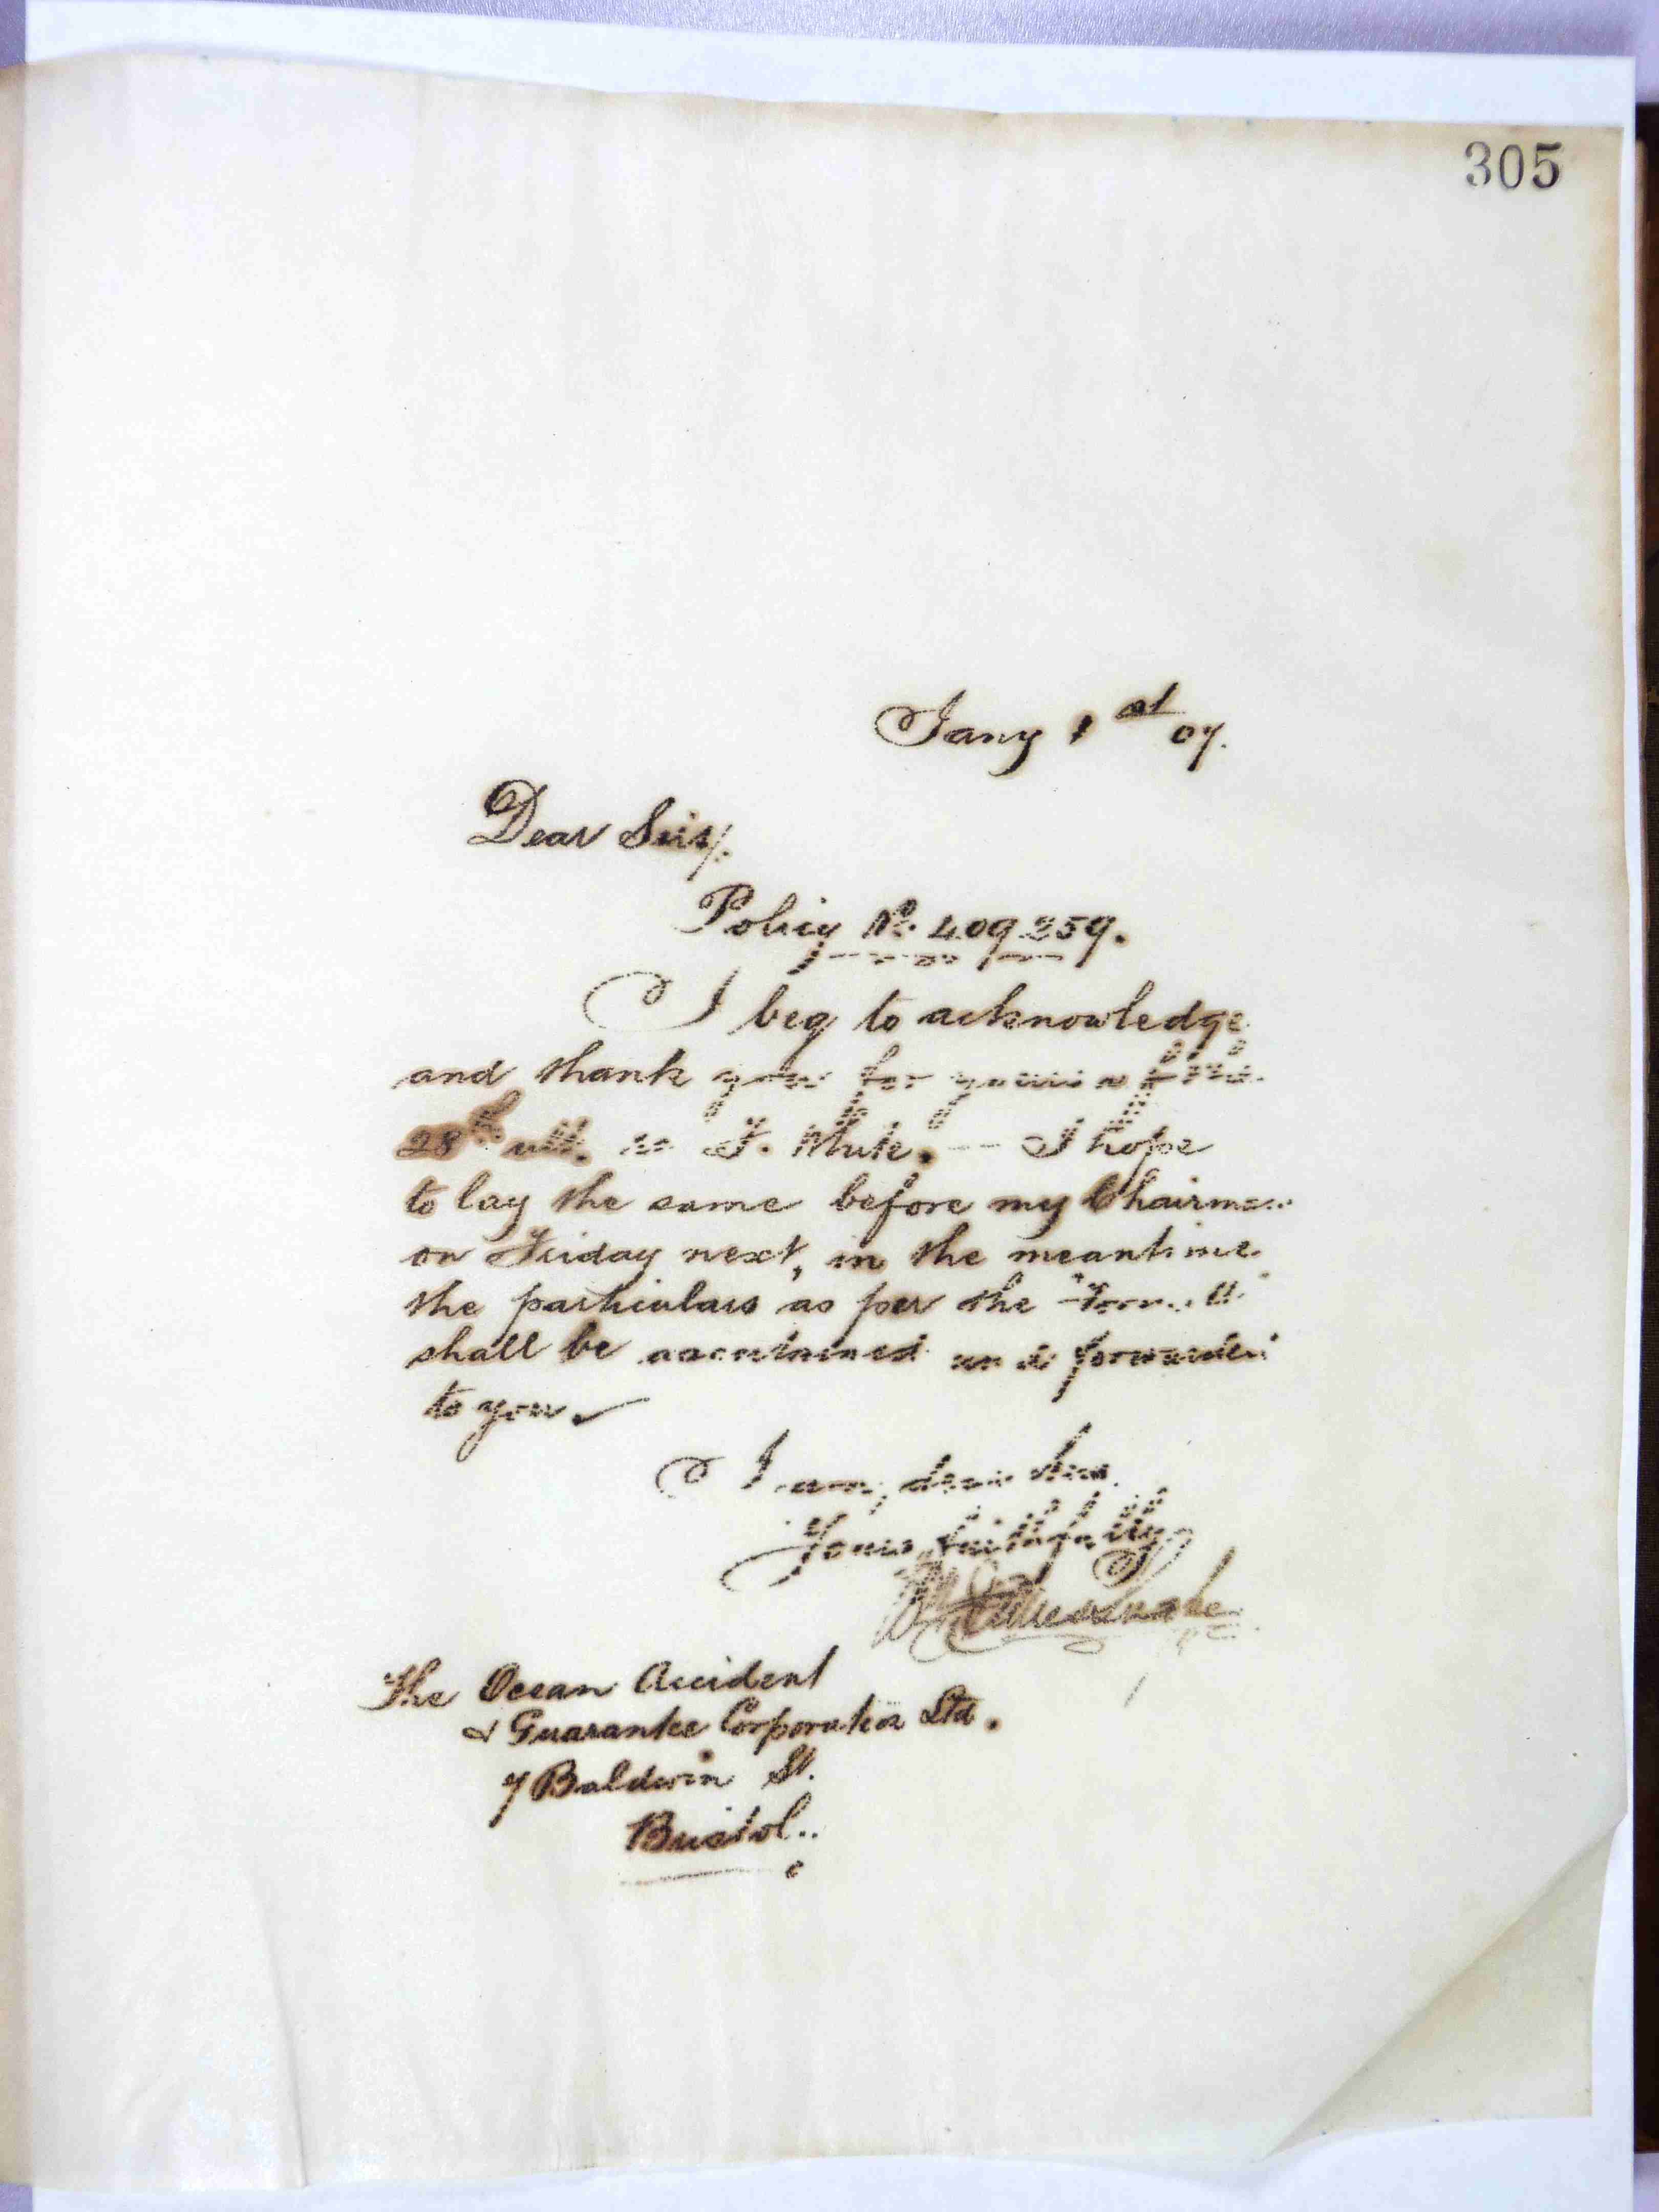 305
Jany 1st 07.
Dear Sirs/.
Policy No. 409259.
I beg to acknowledge
and thank you for yours of the
28th ult. re F. White. — I hope
to lay the same before my Chairman
on Friday next, in the meantime
the particulars as per the "Form
shall be ascertained and forwarded
to you
I am, dear Sirs
Yours faithfully
The Ocean Accident
& Guarantee Corporation Ltd.
7 Baldwin St.
Bristol..